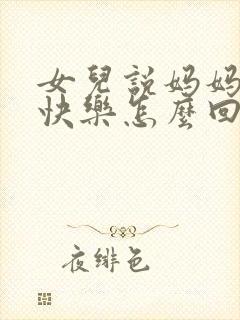 女兒說媽媽
快樂怎麼回
夜緋色